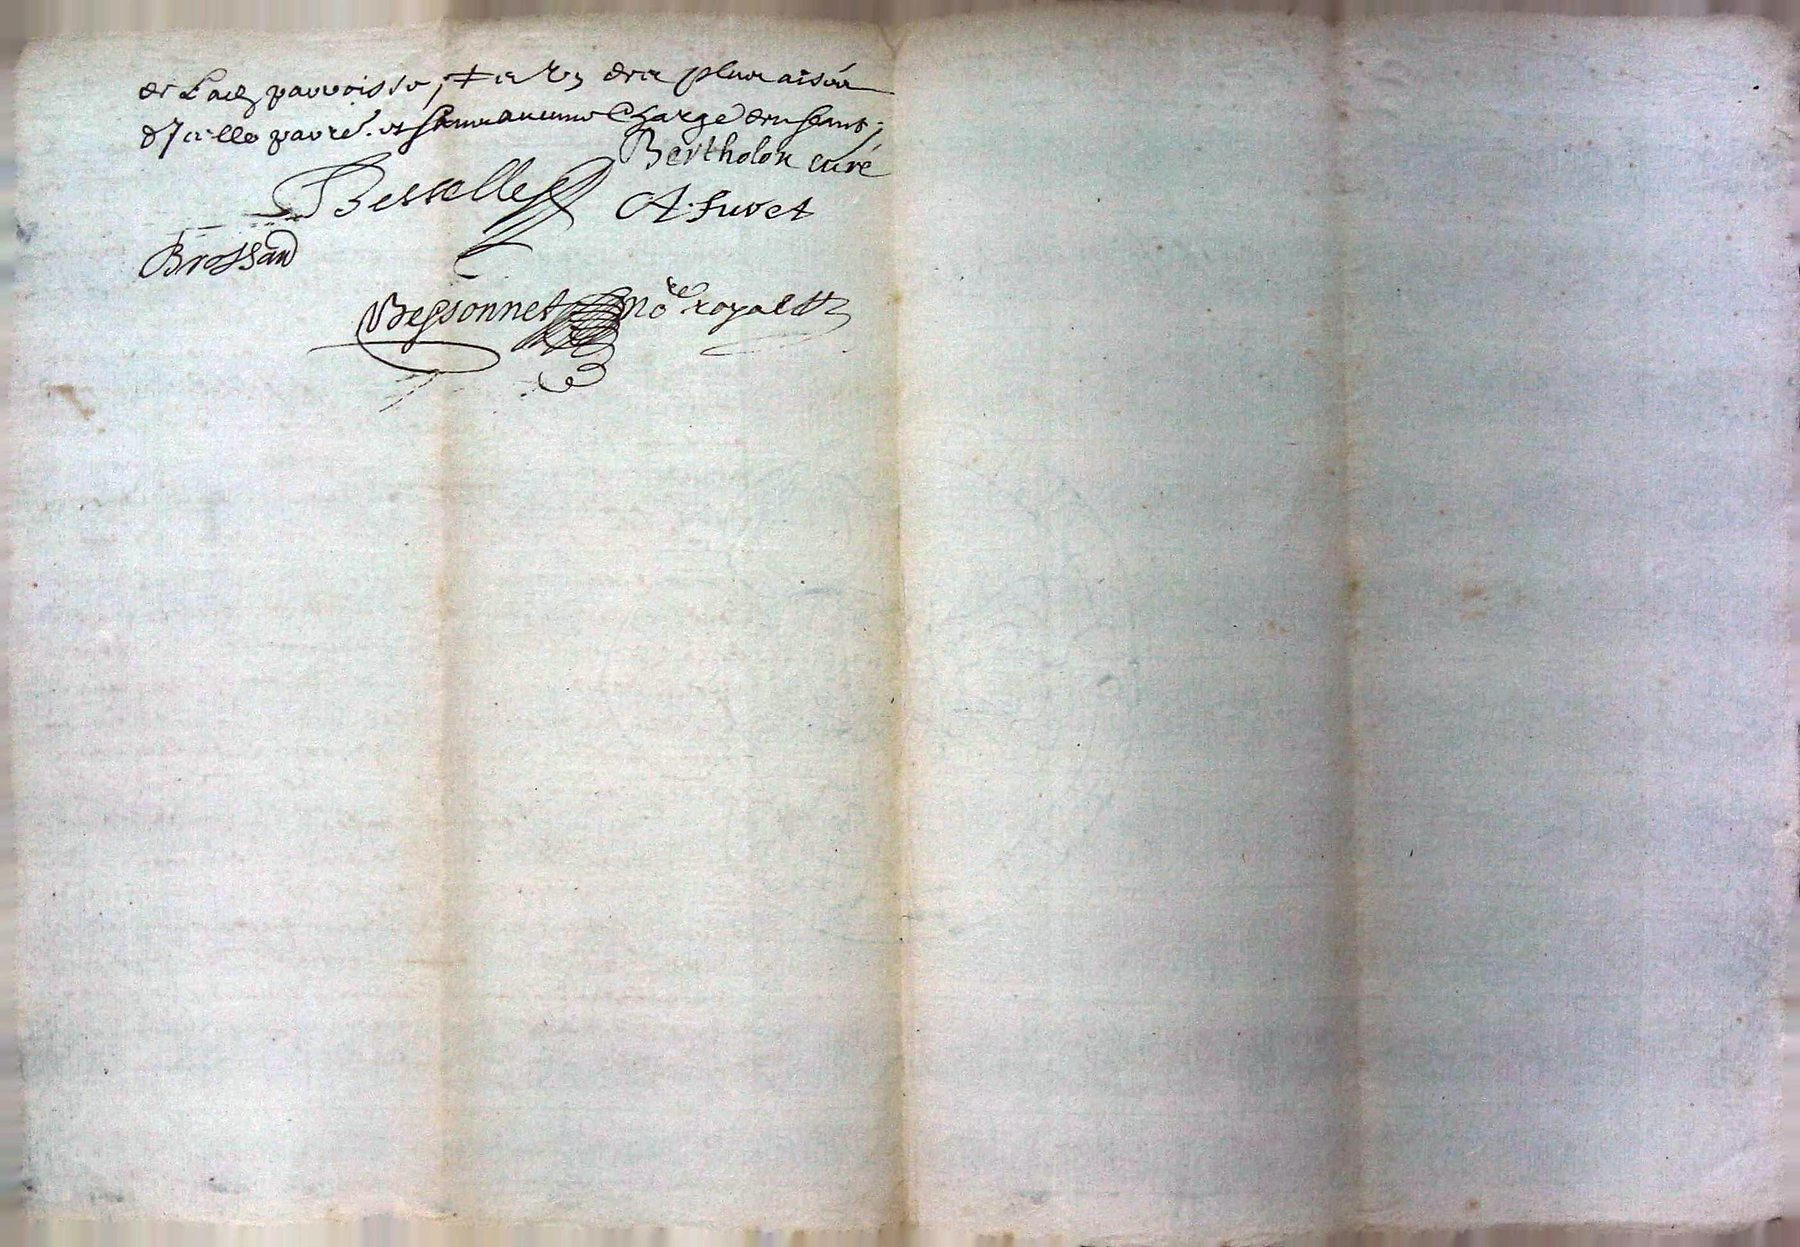 de Lad parroisse, + et des plus aisés
d'Icelle parre. et sans aucune Charge
Bertholon curé
Besselle A. Suvet
Brossan
Bessonnet nore royal